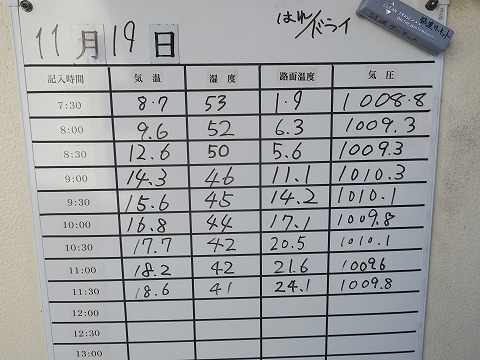 11月19日
はれ/ドライ
記入時間 気温 湿度 路面温度 気圧
7:30 8.7 53 1.9 1008.8
8:00 9.6 52 6.3 1009.3
8:30 12.6 50 5.6 1009.3
9:00 14.3 46 11.1 1010.3
9:30 15.6 45 14.2 1010.1
10:00 16.8 44 17.1 1009.8
10:30 17.7 42 20.5 1010.1
11:00 18.2 42 21.6 1009.6
11:30 18.6 41 24.1 1009.8
12:00
12:30
13:00